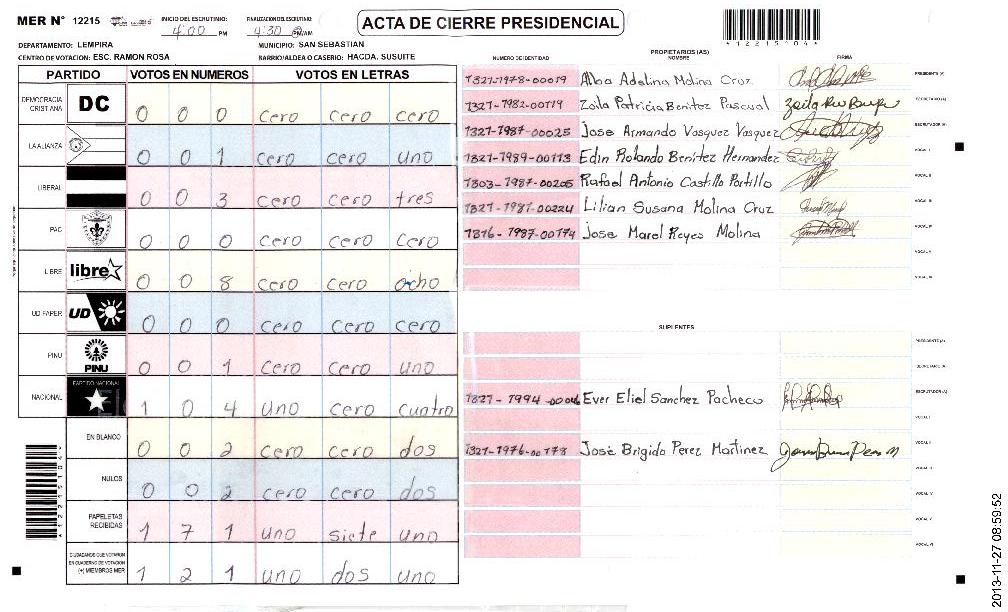 MER N° 12215
INICIO DEL ESCRUTINIO: 4:00 PM
FINALIZACION DEL ESCRUTINIO: 4:30 PM/AM
ACTA DE CIERRE PRESIDENCIAL
*12215104*
DEPARTAMENTO: LEMPIRA
MUNICIPIO: SAN SEBASTIAN
CENTRO DE VOTACION: ESC. RAMON ROSA
BARRIO/ALDEA O CASERIO: HACDA. SUSUITE
PARTIDO VOTOS EN NUMEROS VOTOS EN LETRAS
DEMOCRACIA CRISTIANA DC 0 0 0 cero cero cero
LA ALIANZA 0 0 1 cero cero uno
LIBERAL 0 0 3 cero cero tres
PAC 0 0 0 cero cero cero
LIBRE libre 0 0 8 cero cero ocho
UD FAPER UD 0 0 0 cero cero cero
PINU PINU 0 0 1 cero cero uno
NACIONAL PARTIDO NACIONAL 1 0 4 uno cero cuatro
EN BLANCO 0 0 2 cero cero dos
NULOS 0 0 2 cero cero dos
PAPELETAS RECIBIDAS 1 7 1 uno siete uno
CIUDADANOS QUE VOTARON EN CUADERNO DE VOTACION (+) MIEMBROS MER 1 2 1 uno dos uno
PROPIETARIOS (AS)
NUMERO DE IDENTIDAD NOMBRE FIRMA
1327-1978-00019 Alba Adelina Molina Cruz PRESIDENTE (A)
1327-1982-00119 Zoila Patricia Benitez Pascual SECRETARIO (A)
1327-1987-00025 Jose Armando Vasquez Vasquez ESCRUTADOR (A)
1327-1989-00113 Edin Rolando Benitez Hernandez VOCAL I
1303-1987-00205 Rafael Antonio Castillo Portillo VOCAL II
1327-1987-00224 Lilian Susana Molina Cruz VOCAL III
1316-1987-00174 Jose Marel Reyes Molina VOCAL IV
VOCAL V
VOCAL VI
SUPLENTES
PRESIDENTE (A)
SECRETARIO (A)
1327-1994-00046 Ever Eliel Sanchez Pacheco ESCRUTADOR (A)
VOCAL I
1327-1976-00178 José Brigido Perez Martinez VOCAL II
VOCAL III
VOCAL IV
VOCAL V
VOCAL VI
2013-11-27 08:59:52